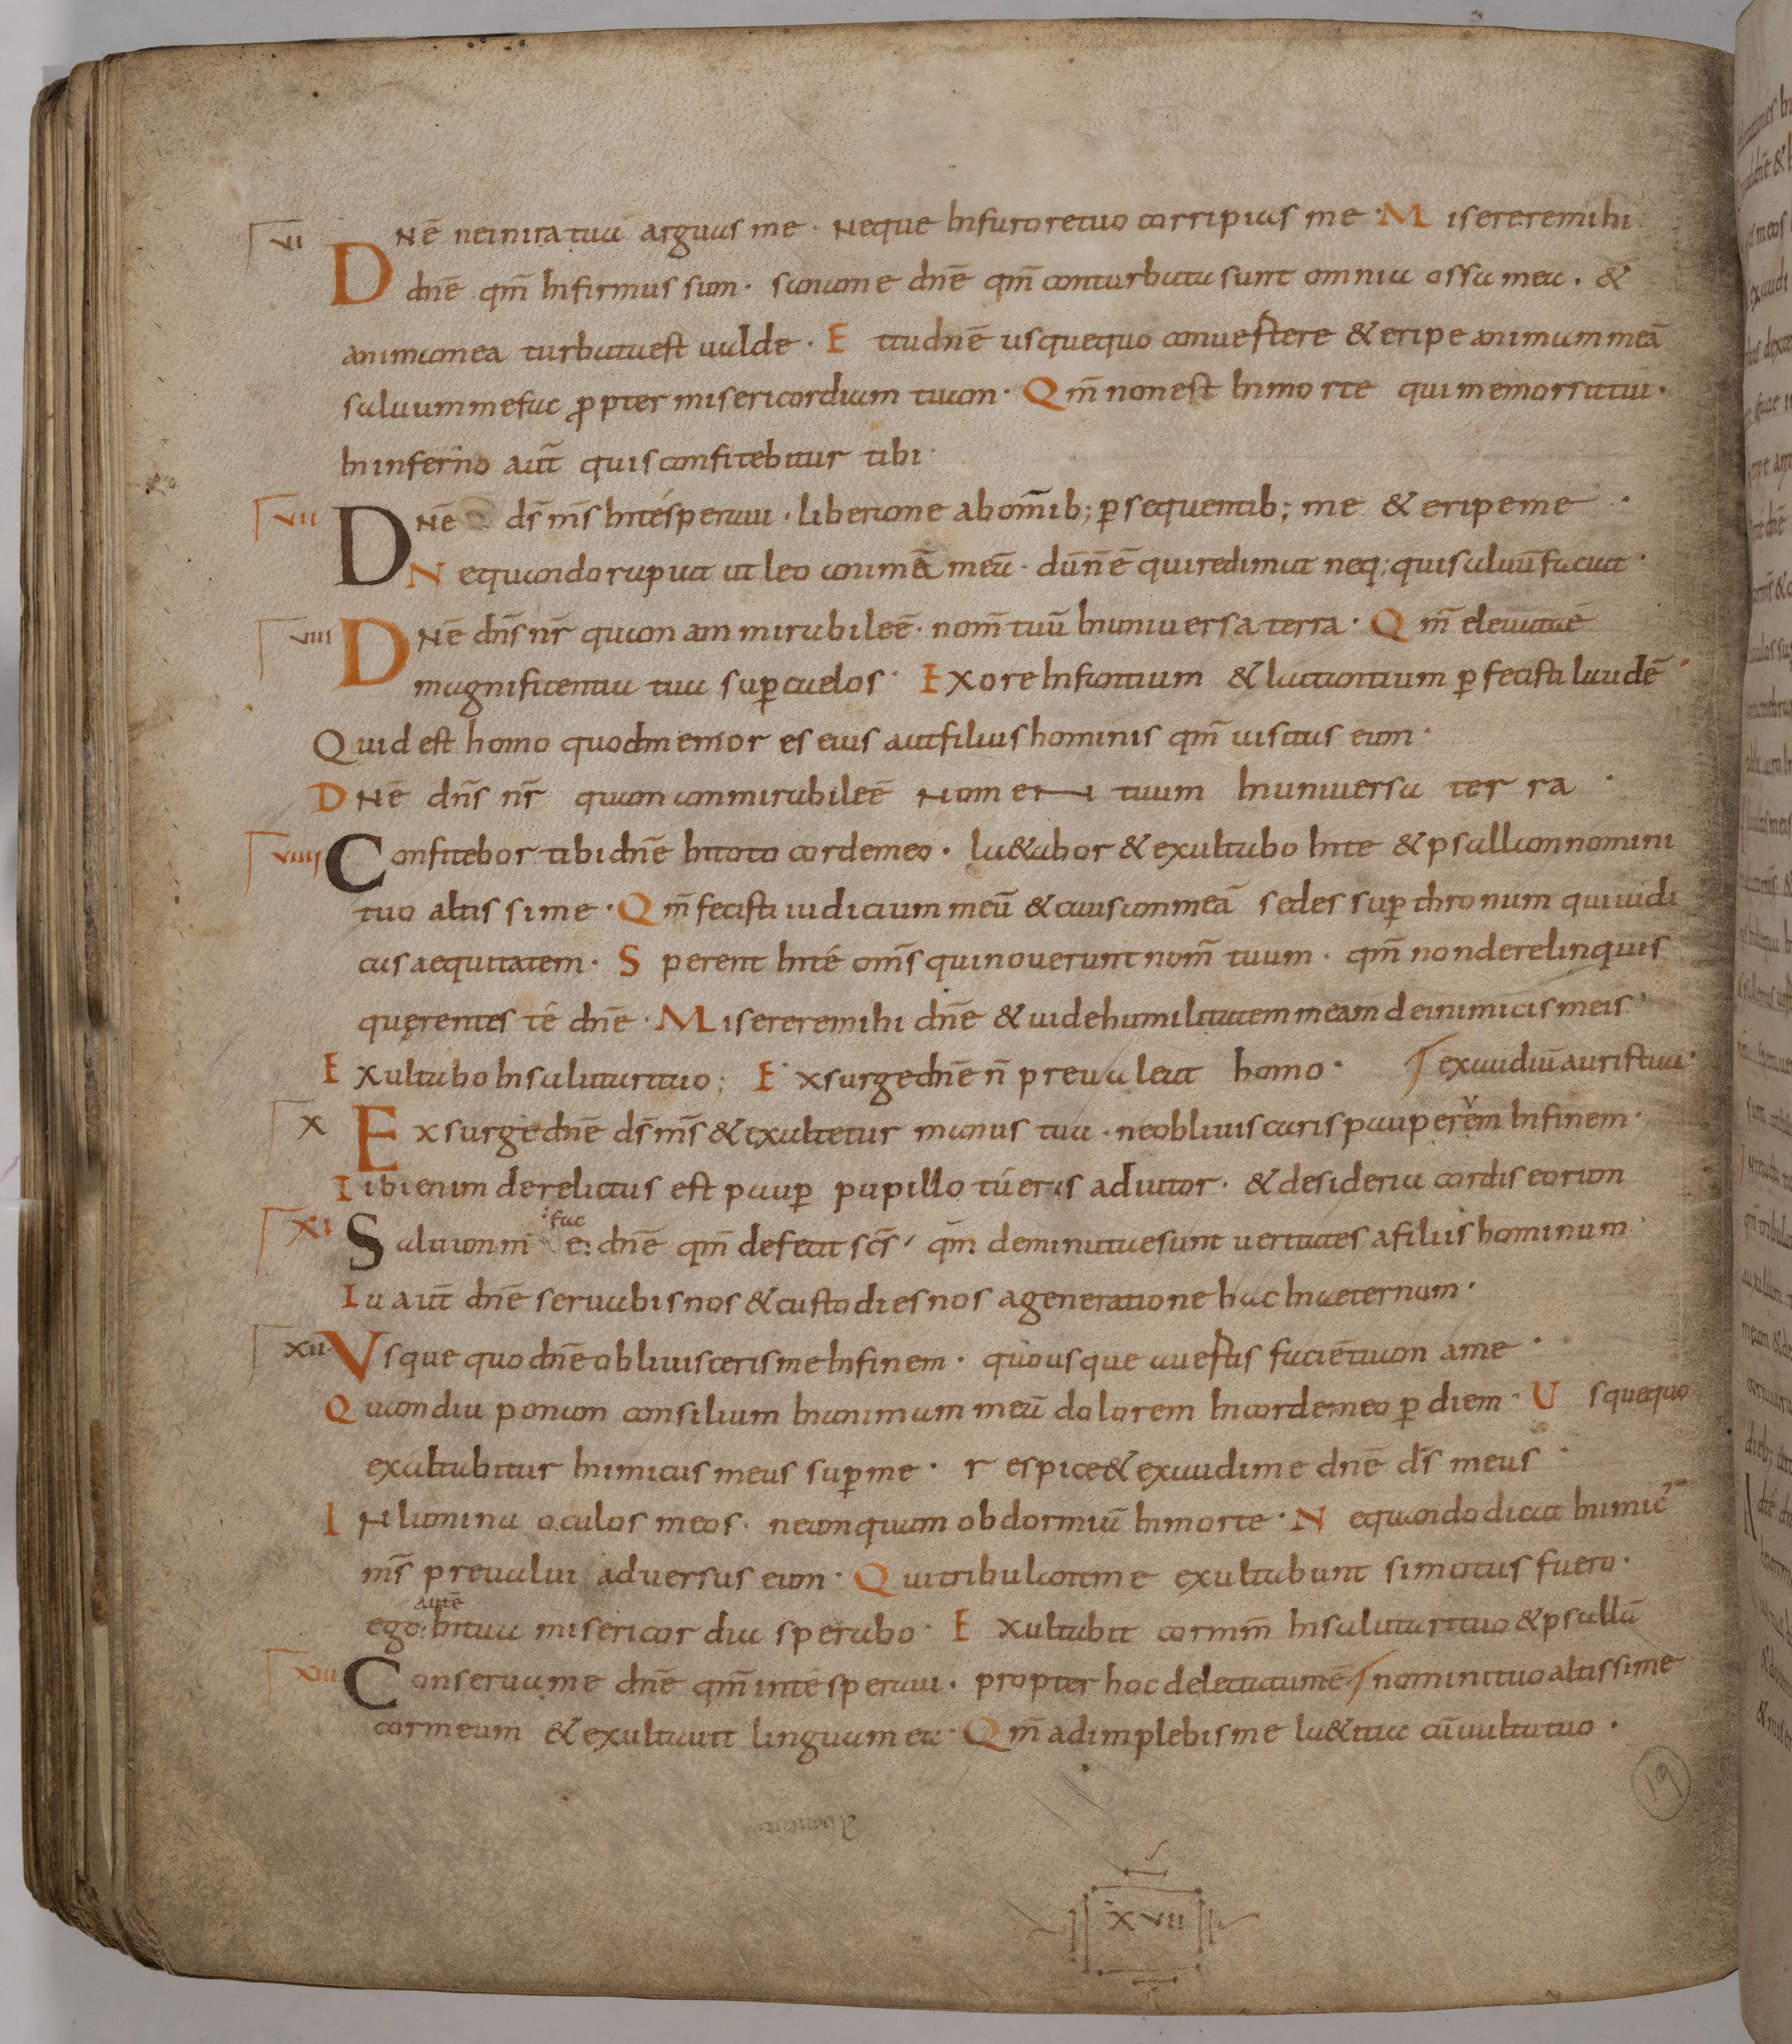 VI DNē neiniratua arguas me · Neque Infuroretuo corripias me · Misereremihi
dnē qm̄ Infirmus sum · saname dnē qm̄ conturbata sunt omnia ossa mea · &
animamea turbataest ualde · E ttudnē usquequo conuertere & eripe animam meā
saluummefac propter misericordiam tuam · Qm̄ nonest Inmorte quimemorsittui ·
Ininferno aut̄ quisconfitebitur tibi ·
VII DNē ds̄ ms̄ Intésperaui · liberame abom̄ib; ꝑsequentib; me & eripeme ·
Nequandorapiat ut leo animā meā · dūnē quiredimat neq; quisaluū faciat ·
VIII DNē dn̄s nr̄ quam am mirabileē · nom̄ tuū Inuniuersa terra · Qm̄ eleuataē
magnificentia tua suꝑ caelos · Exore Infantium & lactantium ꝑfecisti laudē ·
Quid est homo quodmemor es eius autfilius hominis qm̄ uisitas eum ·
DNē dn̄s nr̄ quam ammirabileē Nomen tuum Inuniuersa terra ·
VIIII Confitebor tibi dnē Intoto cordemeo · la&abor & exultabo Inte & psallamnomini
tuo altissime · Qm̄ fecisti iudicium meū & causammeā sedes suꝑ thronum quiiudi
cas aequitatem · Sperent Inté om̄s quinouerunt nom̄ tuum · qm̄ nonderelinquis
quęrentes té dnē · Misereremihi dnē & uidehumilitatem meam deinimicismeis ·
Exultabo Insalutarituo; Exsurgednē n̄ preualeat homo · exaudiūauristua ·
X Exsurgednē ds̄ ms̄ & exaltetur manus tua · neobliuiscaris pauperem Infinem ·
Tibienim derelictus est pauꝑ pupillo túeris adiutor · & desideria cordis eorum
fac
XI Saluumm e: dnē qm̄ defecit sc̄s · qm̄ deminutaesunt ueritates afiliis hominum
Tu aut̄ dnē seruabisnos & custodiesnos ageneratione hac Inaeternum ·
XII Vsquequo dnē obliuiscerisme Infinem · quousque auertis faciē tuam ame ·
Quamdiu ponam consilium Inanimam meā dolorem Incordemeo ꝑ diem · Usquequo
exaltabitur Inimicus meus suꝑme · respice & exaudime dnē ds̄ meus ·
INlumina oculos meos · neumquam obdormiā Inmorte · Nequando dicat Inimic᾽
ms̄ preualui aduersus eum · Quitribulantme exultabunt simotus fuero ·
autē
ego: Intua misericordia sperabo · Exultabit cormm̄ Insalutarituo & psallā
XIII Conseruame dnē qm̄ inté speraui · propter hoc delectatumē nominituoaltissime
cormeum & exultauit linguamea · Qm̄ adimplebisme la&itia cū uultutuo ·
19
XVII